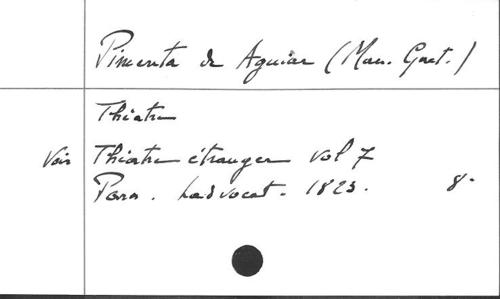 Pimenta de Aguiar (Man. Gaet.)
Théatre
Voir Théatre étranger vol 7
Paris. Ladvocat. 1823. 8°